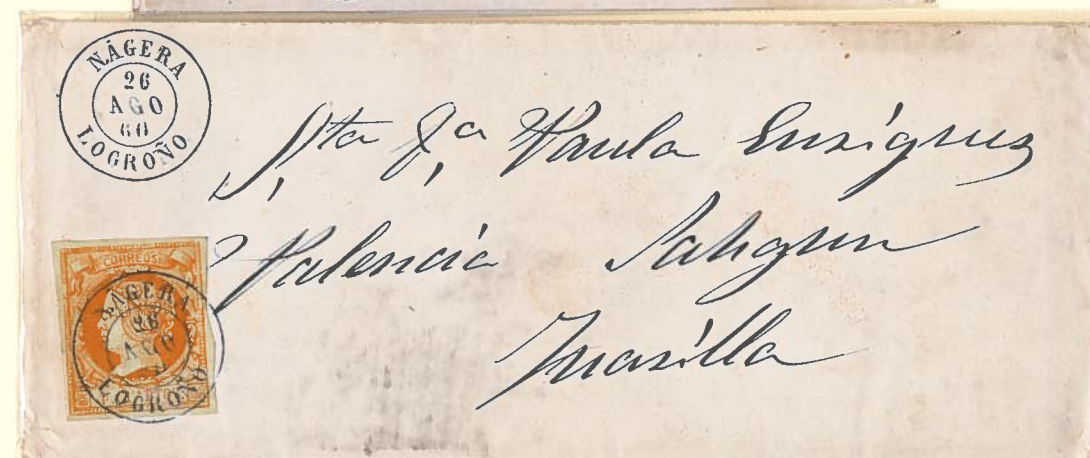 NÁGERA
26
AGO
60
LOGROÑO
Sta Da Paula Enriquez
Valencia Sahagun
Masilla
CORREOS
NÁGERA
26
AGO
LOGROÑO